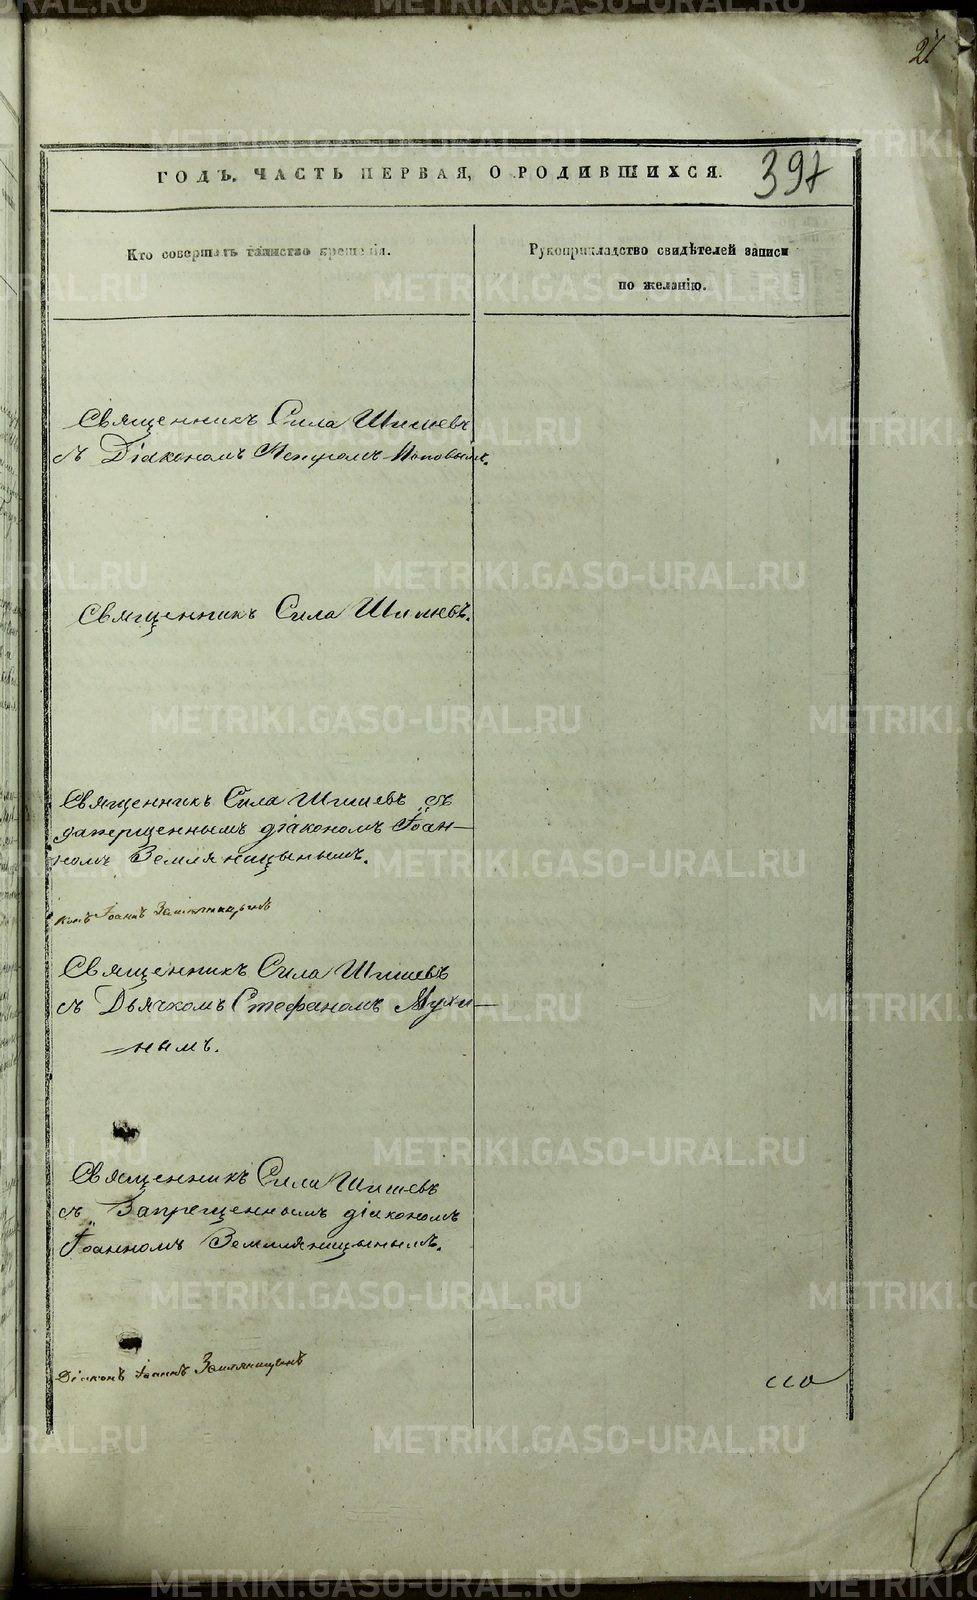 27
ГОДЪ. ЧАСТЬ ПЕРВАЯ, О РОДИВШИХСЯ.
397
Кто совершалъ таинство крещенія.
Рукоприкладство свидѣтелей записи
по желанію.
Священникъ Сила Шишевъ
съ Діакономъ Петромъ Поповымъ.
Священникъ Сила Шишевъ.
Священникъ Сила Шишевъ съ
запрещеннымъ діакономъ Іоан-
номъ Земляницынымъ.
конъ Іоаннъ Земляницынъ
Священникъ Сила Шишевъ
съ Дьячкомъ Стефаномъ Мухи-
нымъ.
Священникъ Сила Шишевъ
съ Запрещеннымъ діакономъ
Іоанномъ Земляницынымъ.
Діаконъ Іоаннъ Земляницынъ
METRIKI.GASO-URAL.RU